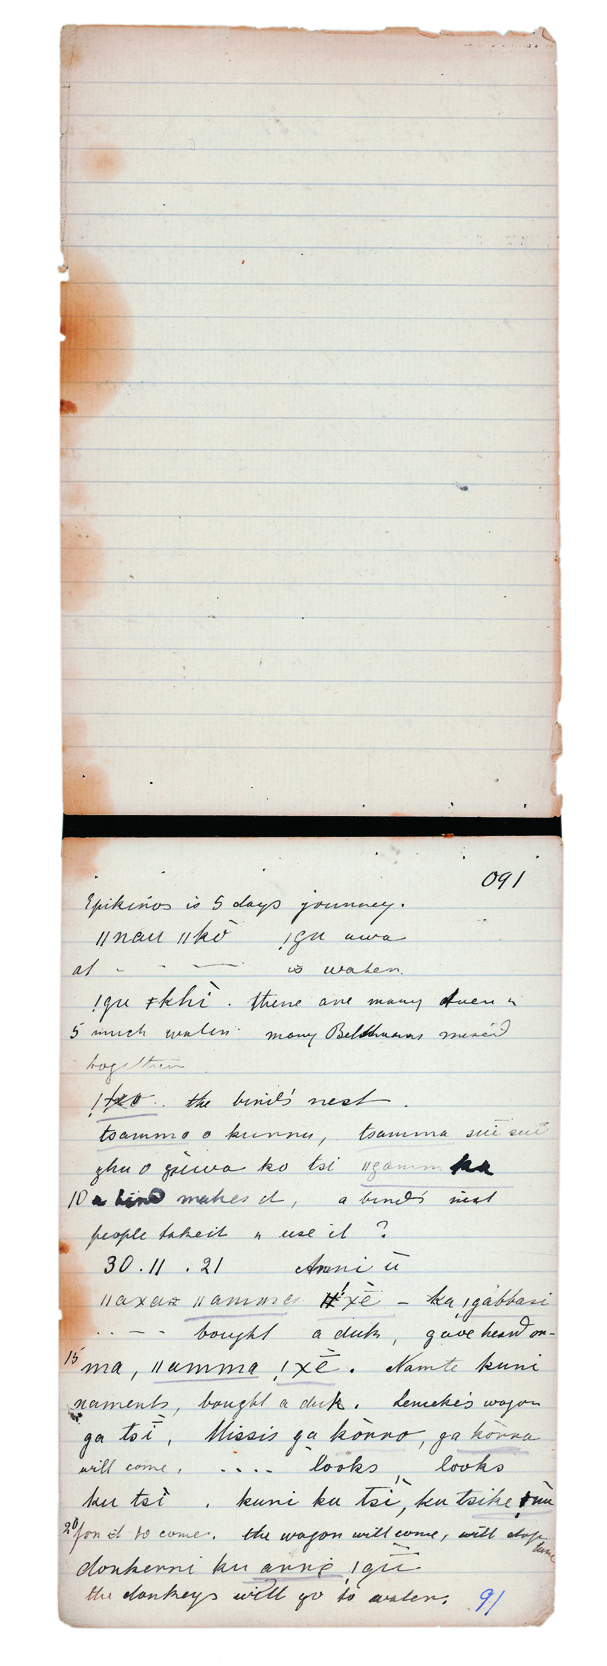 091
Epikiros is 5 days journey.
ǁnau ǁkò ǃgu awa
at - - - is water.
ǃgu ǂkhì. there are many
5 much water. many mixed
together
the bird's nest.
tsammo o kunnu, tsamma süi süi
o ko tsi ǁgamm ka
10 a bird makes it, a bird's nest
people take it & use it ?
30.11.21 ü
ǁaxaǂ ǁamma ǃxē – ka ǃgabbasi
.. - - bought a duk, gave head or-
15 ma, ǁamma ǃxē. Namte kuni
naments, bought a duk. wagon
ga tsī, Missis ga kòrro, ga kòrra
will come, .... looks, looks
ku tsī. kuni ku tsī, ku tsike
20 for it to come. the wagon will come, will stop
here
donkerri ku anne ǃgū
the donkeys will go to water. 91